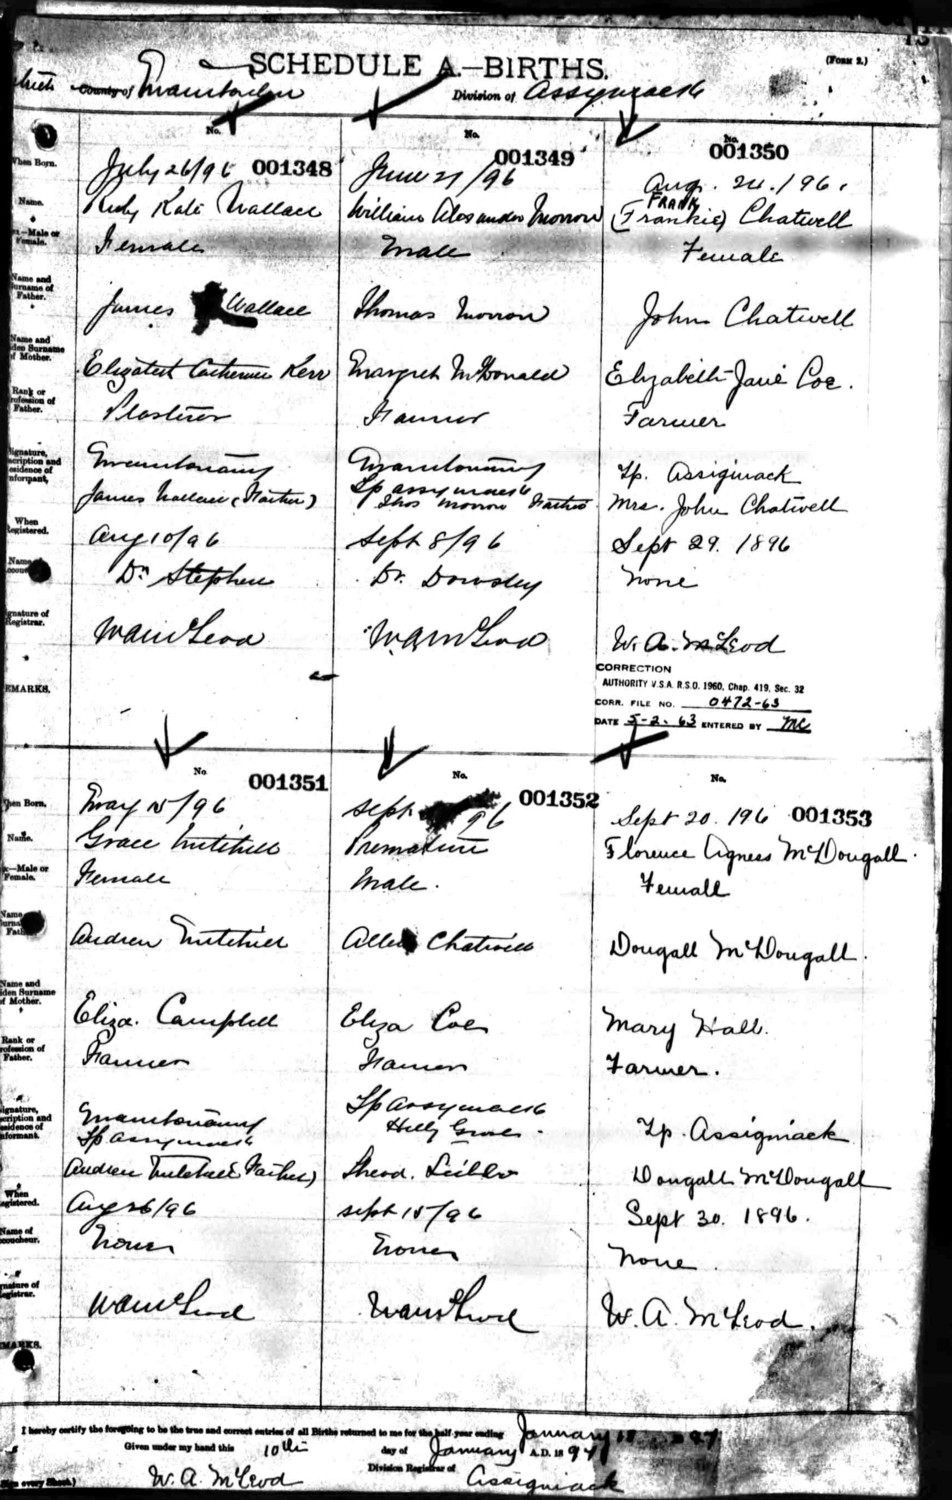 SCHEDULE A.—BIRTHS.
(Form 2.)
County of
Division of Assiginack
When Born.
No.
001348
July 26/96
No.
001349
June 21/96
No.
001350
Aug. 24./96.
Name.
Ruby Kate Wallace
William Alexander Morrow
FRANK
(Frankie) Chatwell
Sex—Male or Female.
Female
Male
Female
Name and
Surname of
Father.
James Wallace
Thomas Morrow
John Chatwell
Name and
Maiden Surname
of Mother.
Elizabeth Catherine Kerr
Margret McDonald
Elizabeth Jane Coe.
Rank or
Profession of
Father.
Plasterer
Farmer
Farmer
Signature,
Description and
Residence of
Informant.
Manitowaning
James Wallace (Father)
Manitowaning
Tp Assiginack
Thos Morrow Father
Tp. Assiginack
Mrs. John Chatwell
When
Registered.
Aug 10/96
Sept 8/96
Sept 29. 1896
Dr Stephen
Dr. Dowsley
None
Signature of
Registrar.
W A McLeod
W. A McLeod
W. A. McLeod
REMARKS.
CORRECTION
AUTHORITY V.S.A. R.S.O. 1960, Chap. 419, Sec. 32
CORR. FILE NO. 0472-63
DATE 5-2-63 ENTERED BY MC
When Born.
No
001351
May 15/96
No.
001352
Sept 96
No.
001353
Sept 20. 196
Name.
Grace Mitchell
Premature
Florence Agness McDougall.
Sex—Male or
Female.
Female
Male.
Female
Andrew Mitchell
Chatwell
Dougall McDougall.
Name and
Maiden Surname
of Mother.
Eliza. Campbell
Eliza Coe
Mary Hall.
Rank or
Profession of
Father.
Farmer
Farmer
Farmer.
Signature,
Description and
Residence of
Informant.
Manitowaning
Tp Assiginack
Andrew Mitchell (Father)
Tp Assiginack
Hilly Grove.
Tp. Assiginack
Dougall McDougall
When
Registered.
Aug 26/96
Sept 15/96
Sept 30. 1896.
Name of
Accoucheur.
None
None
None
Signature of
Registrar.
W A McLeod
W A McLeod
W. A. McLeod.
REMARKS.
I hereby certify the foregoing to be the true and correct entries of all Births returned to me for the half-year ending January
Given under my hand this 10th day of January A.D. 1897
W. A. McLeod
Division Registrar of Assiginack
(Sign every Sheet.)